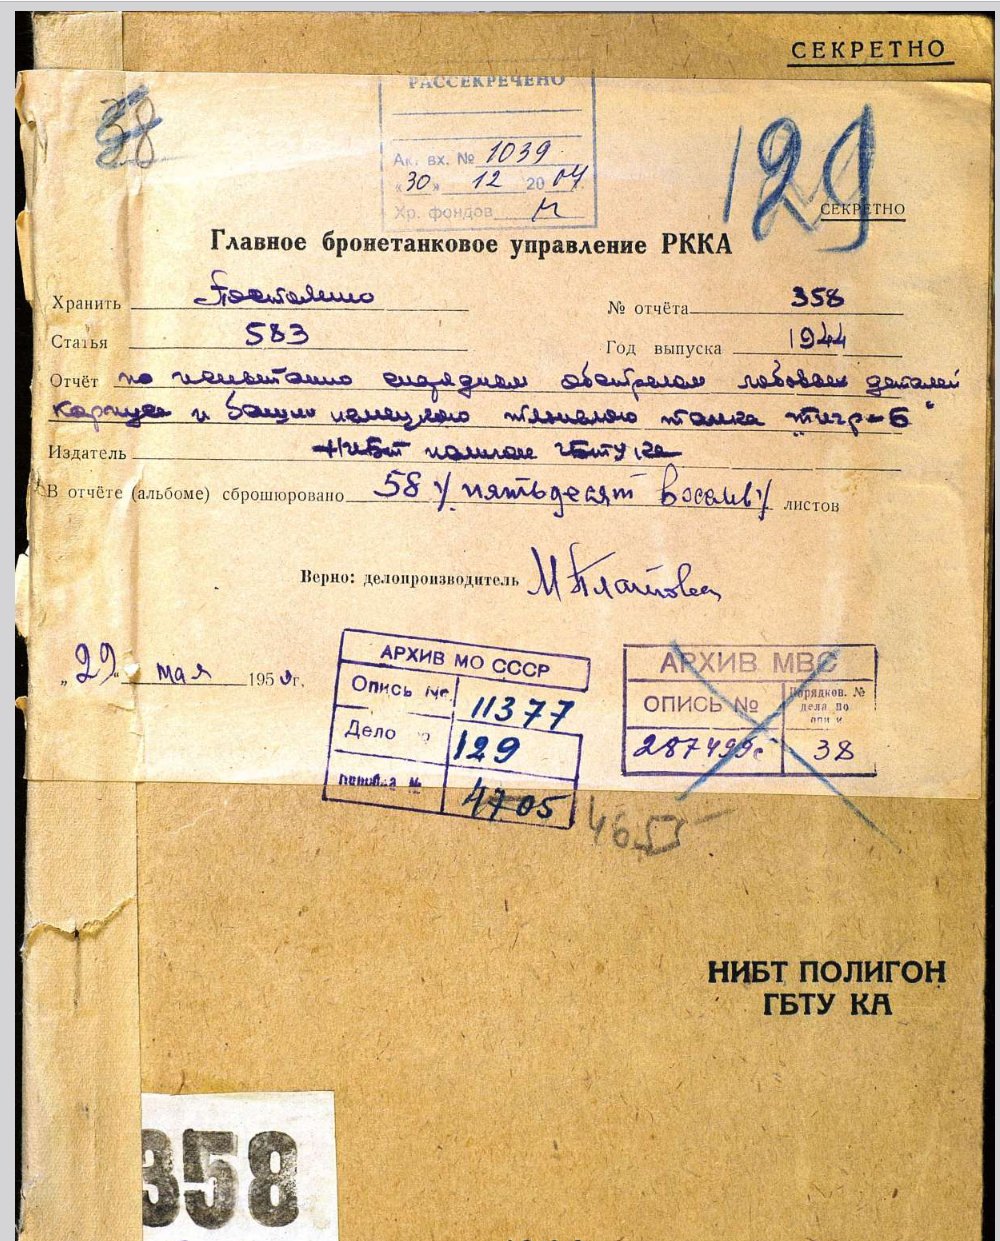 СЕКРЕТНО
РАССЕКРЕЧЕНО
Ак. вх. № 1039
«30» 12 2004 г.
Хр. фондов
38
129
СЕКРЕТНО
Главное бронетанковое управление РККА
Хранить Постоянно
№ отчёта 358
Статья 583
Год выпуска 1944
Отчёт по испытанию снарядным обстрелом лобовых деталей
корпуса и башни немецкого тяжелого танка "Тигр-Б"
Издатель НИБТ полигон ГБТУ КА
В отчёте (альбоме) сброшюровано 58 /пятьдесят восемь/ листов
Верно: делопроизводитель
„29“ мая 195 г.
АРХИВ МО СССР
Опись № 11377
Дело 129
4705
АРХИВ МВС
ОПИСЬ № 287499с
Порядков. № дела по описи 38
465
НИБТ ПОЛИГОН
ГБТУ КА
358